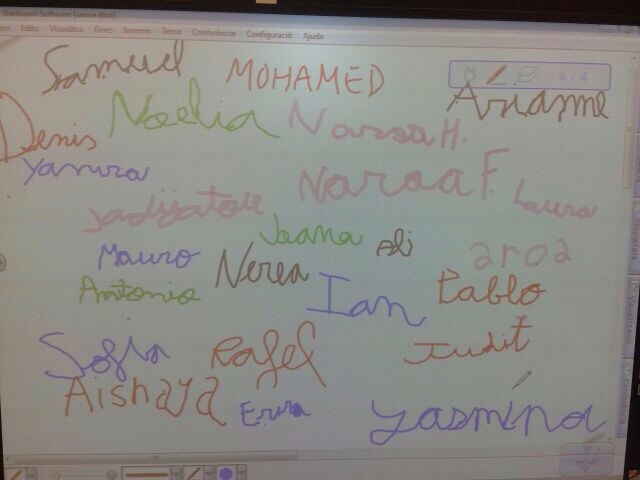 StarBoard Software [sense títol]
Edita Visualitza Fines Insereix Tema Conferència Configuració Ajuda
4 / 4
Samuel MOHAMED Arianne
Denis Noelia Naroa H.
Yanira Naroa F. Laura
Jadijatou
Joana Adi
Mauro Nerea aroa
Antonio Ian Pablo
Sofia Rafel Judit
Aishaya
Yasmina